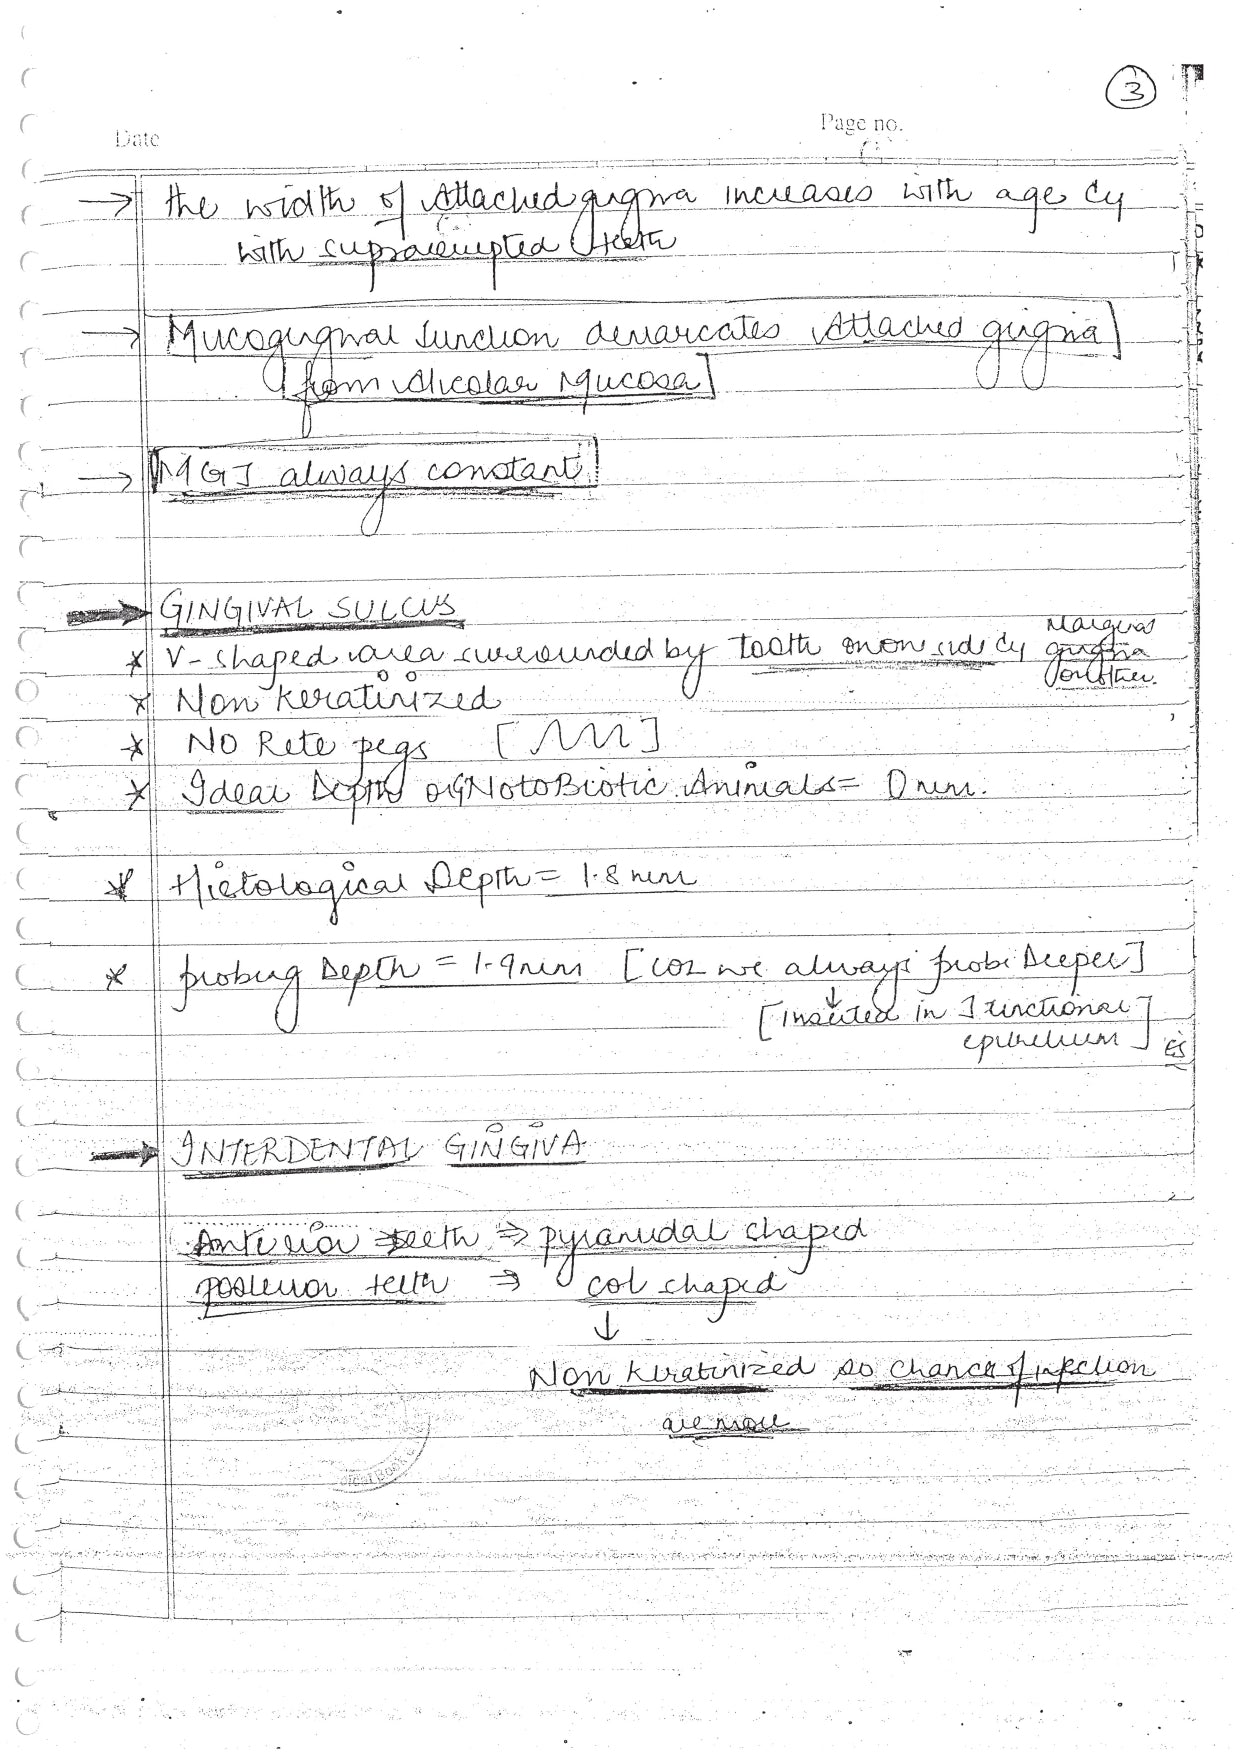 3
Date
Page no.
→ the width of Attached gingiva increases with age &
with supraerupted teeth
→ Mucogingival Junction demarcates Attached gingiva]
[from Alveolar Mucosa]
→ MGJ always constant
→ GINGIVAL SULCUS
* V-shaped area surrounded by tooth on one side & Marginal gingiva on other.
* Non Keratinized
* NO Rete pegs [ ]
* Ideal Depth or GNotoBiotic Animals = 0 mm.
* Histological Depth = 1.8 mm
* probing Depth = 1.9 mm [coz we always probe Deeper]
↓
[Inserted in Junctional
epithelium]
→ INTERDENTAL GINGIVA
Anterior teeth ⇒ pyramidal shaped
posterior teeth ⇒ col shaped
↓
Non keratinized so chances of infection
are more